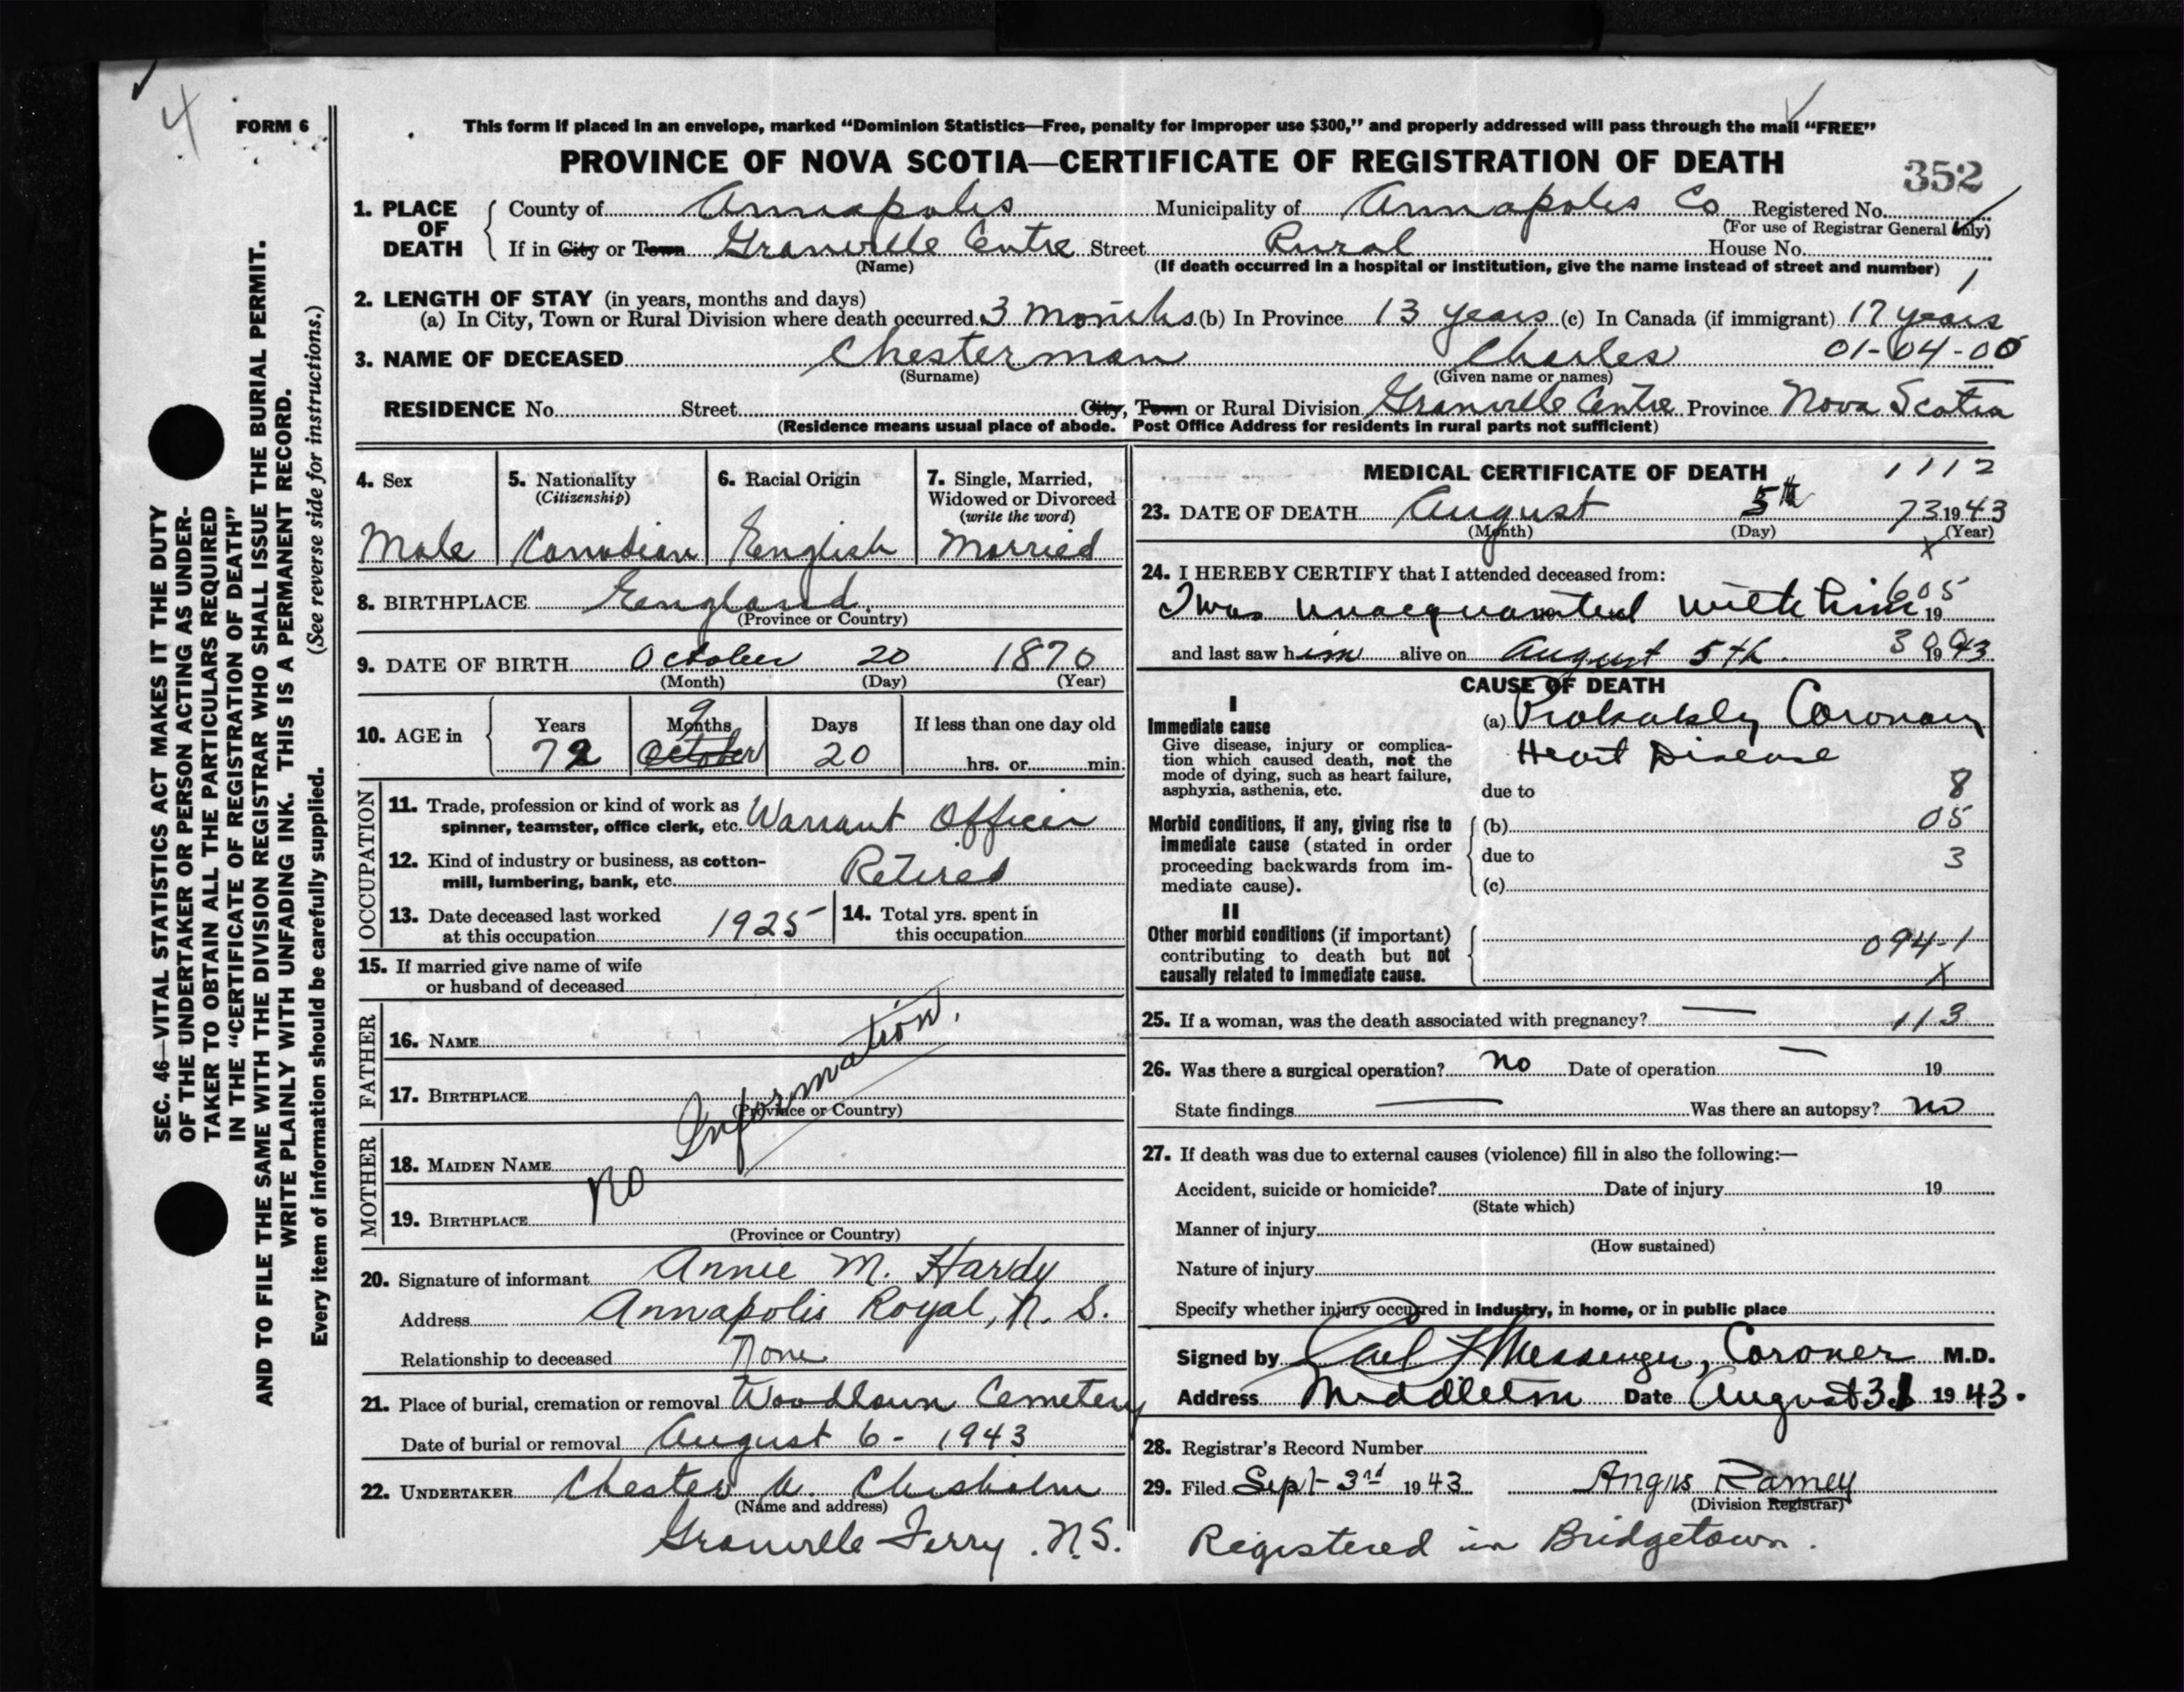 4
FORM 6
This form if placed in an envelope, marked “Dominion Statistics—Free, penalty for improper use $300,” and properly addressed will pass through the mail “FREE”
PROVINCE OF NOVA SCOTIA—CERTIFICATE OF REGISTRATION OF DEATH
352
1. PLACE OF DEATH
County of Annapolis Municipality of Annapolis Co Registered No.
(For use of Registrar General only)
If in City or Town Granville Centre Street Rural House No.
(Name) (If death occurred in a hospital or institution, give the name instead of street and number) 1
2. LENGTH OF STAY (in years, months and days)
(a) In City, Town or Rural Division where death occurred 3 months (b) In Province 13 years (c) In Canada (if immigrant) 17 years
3. NAME OF DECEASED Chesterman Charles 01-04-00
(Surname) (Given name or names)
RESIDENCE No. Street City, Town or Rural Division Granville Centre Province Nova Scotia
(Residence means usual place of abode. Post Office Address for residents in rural parts not sufficient)
SEC. 46—VITAL STATISTICS ACT MAKES IT THE DUTY
OF THE UNDERTAKER OR PERSON ACTING AS UNDER-
TAKER TO OBTAIN ALL THE PARTICULARS REQUIRED
IN THE “CERTIFICATE OF REGISTRATION OF DEATH”
AND TO FILE THE SAME WITH THE DIVISION REGISTRAR WHO SHALL ISSUE THE BURIAL PERMIT.
WRITE PLAINLY WITH UNFADING INK. THIS IS A PERMANENT RECORD.
Every item of information should be carefully supplied. (See reverse side for instructions.)
4. Sex
Male
5. Nationality
(Citizenship)
Canadian
6. Racial Origin
English
7. Single, Married,
Widowed or Divorced
(write the word)
Married
8. BIRTHPLACE England
(Province or Country)
9. DATE OF BIRTH October 20 1870
(Month) (Day) (Year)
10. AGE in Years Months Days If less than one day old
9
72 October 20 hrs. or min.
OCCUPATION
11. Trade, profession or kind of work as
spinner, teamster, office clerk, etc. Warrant Officer
12. Kind of industry or business, as cotton-
mill, lumbering, bank, etc. Retired
13. Date deceased last worked
at this occupation 1925
14. Total yrs. spent in
this occupation
15. If married give name of wife
or husband of deceased
FATHER
16. NAME
17. BIRTHPLACE
(Province or Country)
MOTHER
18. MAIDEN NAME
19. BIRTHPLACE
(Province or Country)
No Information.
20. Signature of informant Annie M. Hardy
Address Annapolis Royal, N. S.
Relationship to deceased None
21. Place of burial, cremation or removal Woodlawn Cemetery
Date of burial or removal August 6 - 1943
22. UNDERTAKER Chester A. Chisholm
(Name and address)
Granville Ferry. N.S.
MEDICAL CERTIFICATE OF DEATH 1112
23. DATE OF DEATH August 5th 73 1943
(Month) (Day) (Year)
X
24. I HEREBY CERTIFY that I attended deceased from:
605
I was unacquainted with him 19
and last saw him alive on August 5th. 1943
CAUSE OF DEATH
I
Immediate cause
Give disease, injury or complica-
tion which caused death, not the
mode of dying, such as heart failure,
asphyxia, asthenia, etc.
(a) Probably Coronary
Heart Disease
due to 8
Morbid conditions, if any, giving rise to
immediate cause (stated in order
proceeding backwards from im-
mediate cause).
(b) 05
due to 3
(c)
II
Other morbid conditions (if important)
contributing to death but not
causally related to immediate cause.
094-1
X
25. If a woman, was the death associated with pregnancy? — 113
26. Was there a surgical operation? no Date of operation — 19
State findings — Was there an autopsy? no
27. If death was due to external causes (violence) fill in also the following:—
Accident, suicide or homicide? Date of injury 19
(State which)
Manner of injury
(How sustained)
Nature of injury
Specify whether injury occurred in industry, in home, or in public place
Signed by Messenger, Coroner M.D.
Address Middleton Date August 31 1943.
28. Registrar’s Record Number
29. Filed Sept 3rd 1943 Angus Ramey
(Division Registrar)
Registered in Bridgetown.